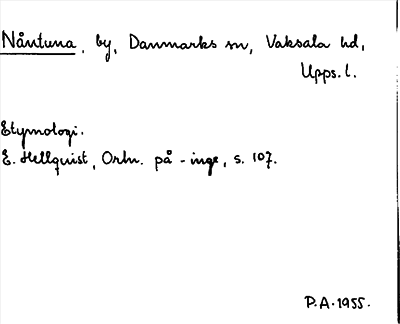 Nåntuna, by, Danmarks sn, Vaksala hd,
Upps. l.
Etymologi.
E. Hellquist, Ortn. på -inge, s. 107.
P.A. 1955.